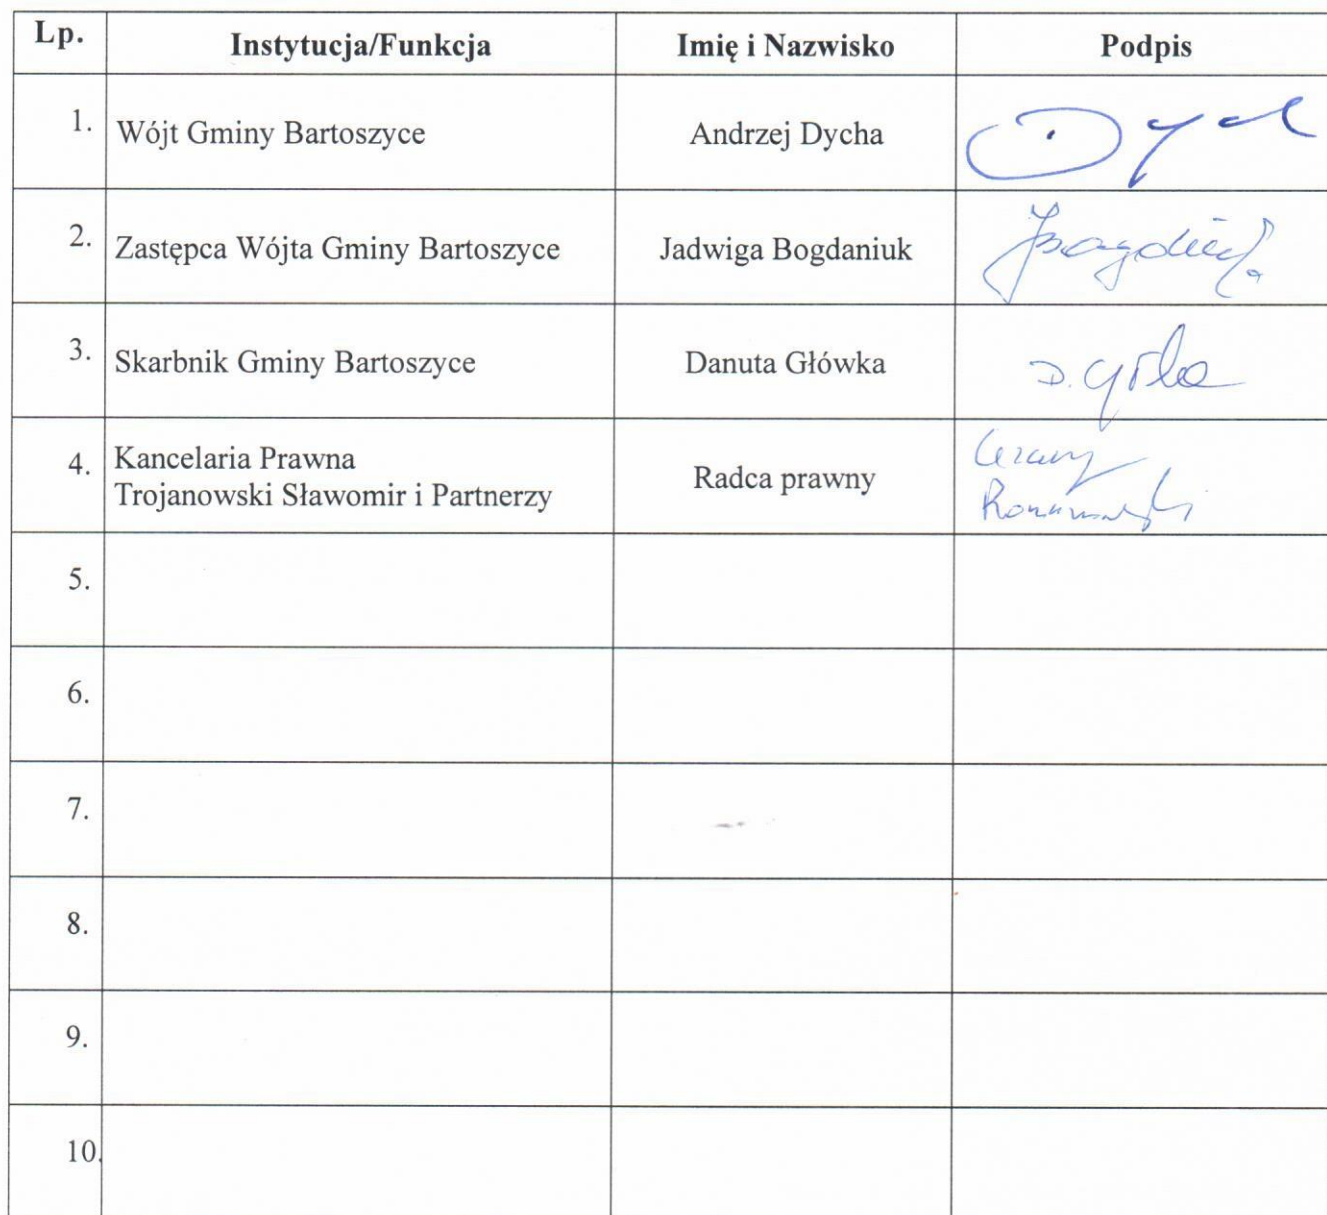 Lp. Instytucja/Funkcja Imię i Nazwisko Podpis
1. Wójt Gminy Bartoszyce Andrzej Dycha
2. Zastępca Wójta Gminy Bartoszyce Jadwiga Bogdaniuk
3. Skarbnik Gminy Bartoszyce Danuta Główka
4. Kancelaria Prawna
Trojanowski Sławomir i Partnerzy Radca prawny
Cezary
5.
6.
7.
8.
9.
10.